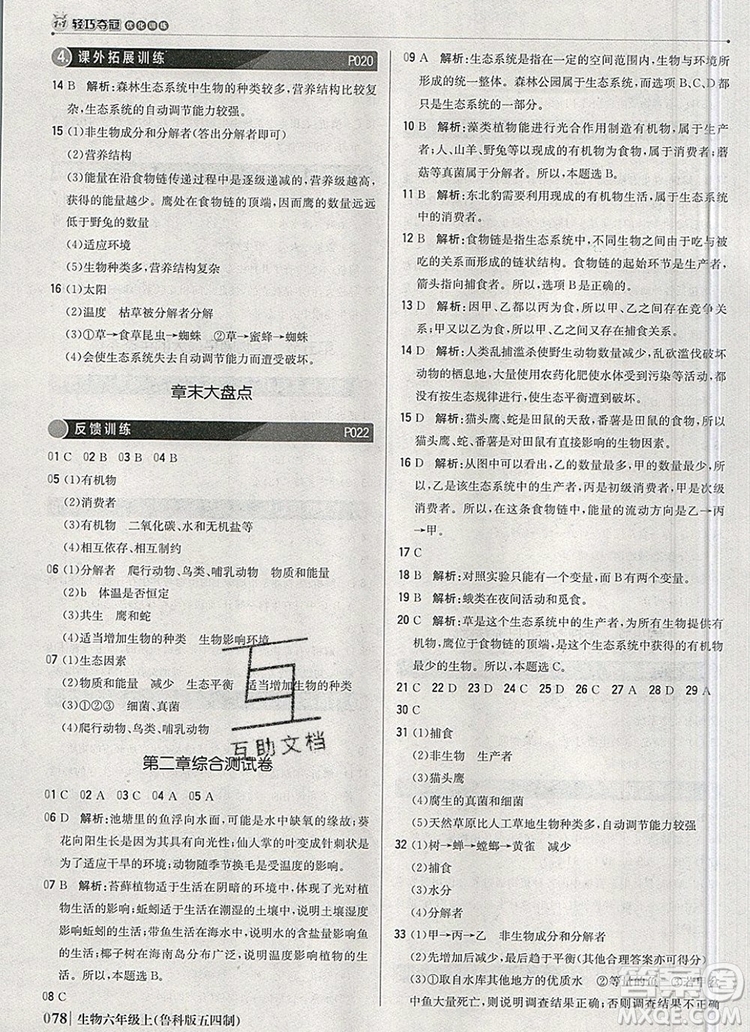 1+1 轻巧夺冠 优化训练
4. 课外拓展训练 P020
14 B 解析:森林生态系统中生物的种类较多,营养结构比较复
杂,生态系统的自动调节能力较强。
15 (1)非生物成分和分解者(答出分解者即可)
(2)营养结构
(3)能量在沿食物链传递过程中是逐级递减的,营养级越高,
获得的能量越少。鹰处在食物链的顶端,因而鹰的数量远远
低于野兔的数量
(4)适应环境
(5)生物种类多,营养结构复杂
16 (1)太阳
(2)温度 枯草被分解者分解
(3)①草→食草昆虫→蜘蛛 ②草→蜜蜂→蜘蛛
(4)会使生态系统失去自动调节能力而遭受破坏。
章末大盘点
反馈训练 P022
01 C 02 B 03 B 04 C
05 (1)有机物
(2)消费者
(3)有机物 二氧化碳、水和无机盐等
(4)相互依存、相互制约
06 (1)分解者 爬行动物、鸟类、哺乳动物 物质和能量
(2)b 体温是否恒定
(3)共生 鹰和蛇
(4)适当增加生物的种类 生物影响环境
07 (1)生态因素
(2)爬行动物 减少 生态平衡 适当增加生物的种类
(3)细菌、真菌
(4)爬行动物、鸟类、哺乳动物
第二章综合测试卷
01 C 02 C 03 D 04 A 05 A
06 D 解析:池塘里的鱼浮向水面,可能是水中缺氧的缘故;葵
花向阳是受阳光的影响;仙人掌的叶变成针状刺是受干旱环
境的影响;家兔在春秋季节换毛是受温度的影响。
07 B 解析:苔藓植物适于生活在阴暗的环境中,体现了光对植
物生活的影响;蚯蚓适于生活在潮湿的土壤中,体现了土壤
湿度对蚯蚓的影响;带鱼生活在海水中,体现了水中含盐量
的影响;椰子树在海南岛分布广泛,说明温度影响植物的
生活。
08 C
078 生物六年级上(鲁科版五四制)
09 A 解析:生态系统是指在一定的空间范围内,生物与环境所
形成的统一整体。森林公园属于生态系统,而选项B、C、D都
只是生态系统的一部分。
10 B 解析:藻类植物能进行光合作用制造有机物,属于生产
者;人、山羊、野兔以植物为食物,属于消费者;蘑
菇等真菌属于分解者。所以,本题选B。
11 B 解析:东北豹需要利用现成的有机物生活,属于生态系统
中的消费者。
12 B 解析:食物链是指生态系统中,不同生物之间由于吃与被
吃的关系而形成的链状结构。食物链的起始环节是生产者,
箭头指向捕食者。所以,选项B是正确的。
13 D 解析:因甲、乙都以丙为食,所以甲、乙之间存在竞争关
系;又因甲以乙为食,所以甲、乙之间存在捕食关系。
14 D 解析:人类乱捕滥杀使野生动物数量减少,乱砍滥伐破坏
动物的栖息地,大量使用农药化肥使动物也受到伤害。只有
按生态规律进行耕种,才能使生态平衡遭到缓解。
15 D 解析:猫头鹰、蛇是田鼠的天敌,番薯是田鼠的食物。所以
猫头鹰、蛇、番薯都是影响田鼠的生物因素。
16 D 解析:从图中可以看出,丙的数量最多,甲的数量最少,乙
的数量居中。所以,乙是生产者,丙是初级消费者,甲是次级消费
者。所以,在这条食物链中,能量流动的方向应该是乙→丙
→甲。
17 C
18 B 解析:对照实验只能有一个变量,而B有两个变量。
19 B 解析:蛾类在夜间活动和觅食。
20 C 解析:草是这个生态系统中的生产者,为所有生物提供有
机物,鹰位于食物链的顶端,是这个生态系统中数量最少
的生物。所以,本题选C。
21 C 22 D 23 D 24 C 25 C 26 A 27 A 28 D 29 A
30 C
31 (1)捕食
(2)非生物 生产者
(3)猫头鹰
(4)腐生的真菌和细菌
(5)天然草原比人工草地生态系统的自动调节能力强
32 (1)树→蝉→螳螂→黄雀 减少
(2)捕食
(3)水分
(4)分解者
33 (1)甲→丙→乙 先增加后减少
(2)下降 人工喂养的作用(其他合理答案亦可得分)
(3)①本地水库的优质水 ②等量的鱼 ③若甲缸
中鱼大量死亡,则推测成立;否则,推测不成立
互助文档
答案圈